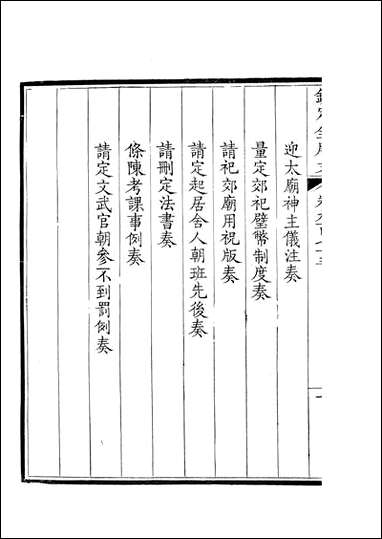 迎太廟神主儀注奏
量定郊祀璧幣制度奏
請祀郊廟用祝版奏
請定起居舍人朝班先後奏
請刪定法書奏
條陳考課事例奏
請定文武官朝參不到罰例奏